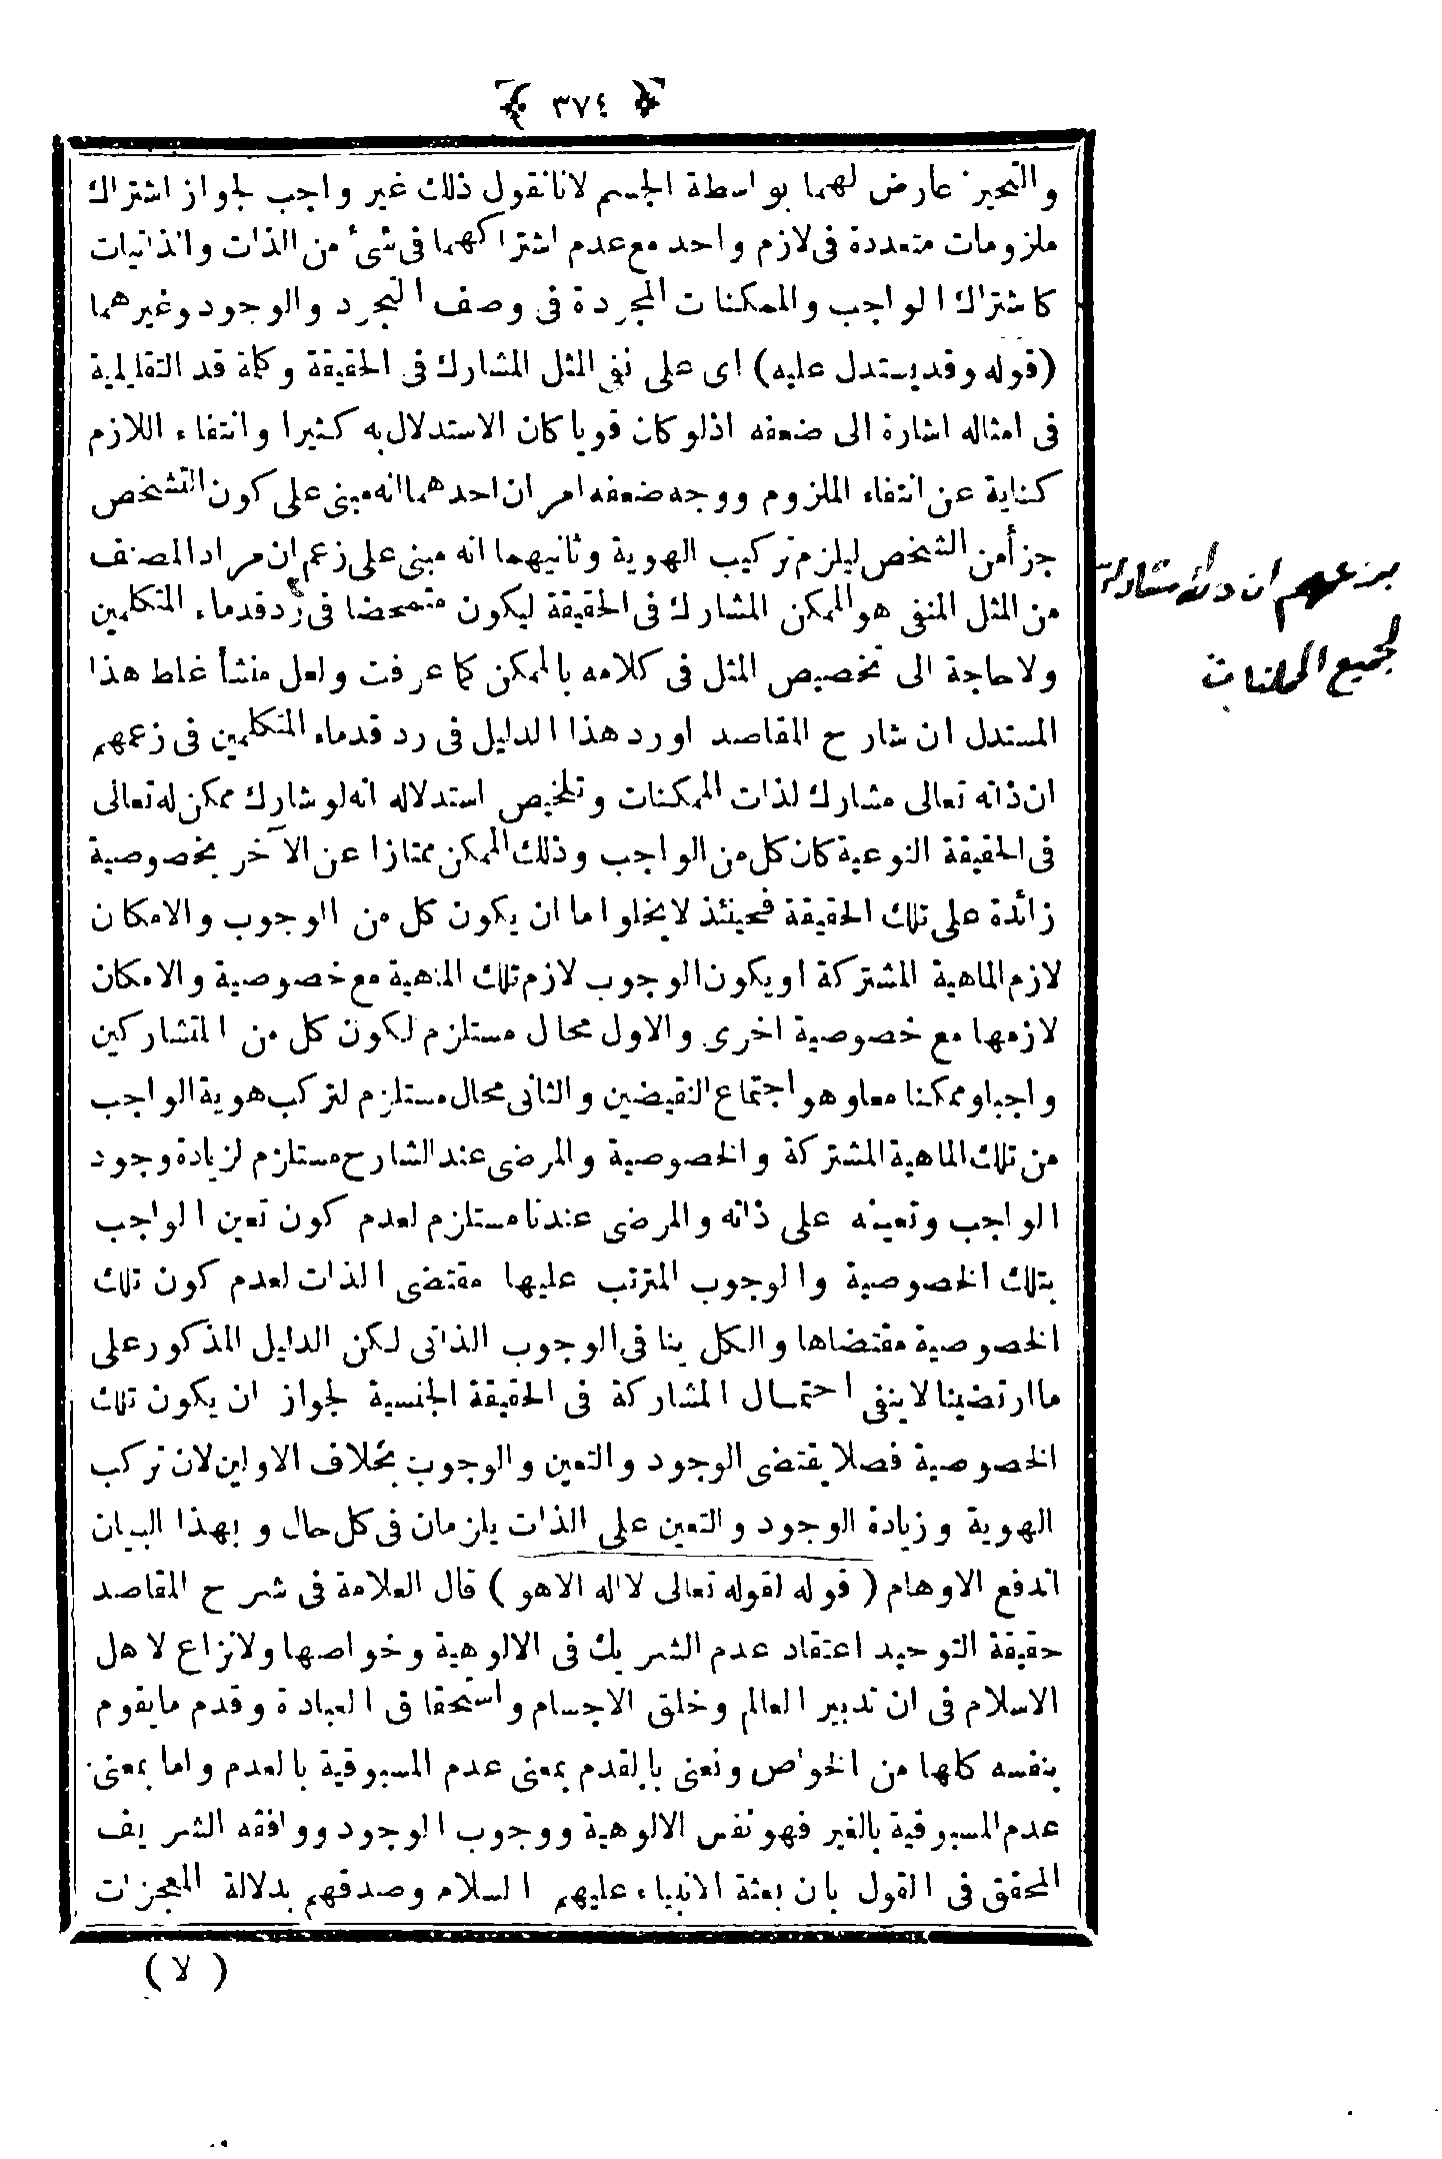 ﴿ ٣٧٤ ﴾
والتحيز عارض لهما بواسطة الجسم لانا نقول ذلك غير واجب لجواز اشتراك
ملزومات متعددة فى لازم واحد مع عدم اشتراكهما فى شئ من الذات والذاتيات
كاشتراك الواجب والممكنات المجردة فى وصف التجرد والوجود وغيرهما
(قوله وقد يستدل عليه) اى على نفى المثل المشارك فى الحقيقة وكلمة قد التقليلية
فى امثاله اشارة الى ضعفه اذلو كان قويا كان الاستدلال به كثيرا وانتفاء اللازم
كناية عن انتفاء الملزوم ووجه ضعفه امران احدهما انه مبنى على كون التشخص
جزأ من الشخص ليلزم تركيب الهوية وثانيهما انه مبنى على زعم ان مراد المصنف
من المثل المنفى هو الممكن المشارك فى الحقيقة ليكون متمحضا فى رد قدماء المتكلمين
ولا حاجة الى تخصيص المثل فى كلامه بالممكن كما عرفت ولعل منشأ غلط هذا
المستدل ان شارح المقاصد اورد هذا الدليل فى رد قدماء المتكلمين فى زعمهم
ان ذاته تعالى مشارك لذات الممكنات وتلخيص استدلاله انه لو شارك ممكن له تعالى
فى الحقيقة النوعية كان كل من الواجب وذلك الممكن ممتازا عن الآخر بخصوصية
زائدة على تلك الحقيقة فحينئذ لا يخلوا اما ان يكون كل من الوجوب والامكان
لازم الماهية المشتركة او يكون الوجوب لازم تلك المهية مع خصوصية والامكان
لازمها مع خصوصية اخرى والاول محال مستلزم لكون كل من المتشاركين
واجبا وممكنا معا وهو اجتماع النقيضين والثانى محال مستلزم لتركب هوية الواجب
من تلك الماهية المشتركة والخصوصية والمرضى عند الشارح مستلزم لزيادة وجود
الواجب وتعينه على ذاته والمرضى عندنا مستلزم لعدم كون تعين الواجب
بتلك الخصوصية والوجوب المترتب عليها مقتضى الذات لعدم كون تلك
الخصوصية مقتضاها والكل ينافى الوجوب الذاتى لكن الدليل المذكور على
ما ارتضينا لا ينفى احتمال المشاركة فى الحقيقة الجنسية لجواز ان يكون تلك
الخصوصية فصلا يقتضى الوجود والتعين والوجوب بخلاف الاولين لان تركب
الهوية وزيادة الوجود والتعين على الذات يلزمان فى كل حال وبهذا البيان
اندفع الاوهام (قوله لقوله تعالى لا اله الا هو) قال العلامة فى شرح المقاصد
حقيقة التوحيد اعتقاد عدم الشريك فى الالوهية وخواصها ولا نزاع لاهل
الاسلام فى ان تدبير العالم وخلق الاجسام واستحقاق العبادة وقدم ما يقوم
بنفسه كلها من الخواص ونعنى بالقدم بمعنى عدم المسبوقية بالعدم واما بمعنى
عدم المسبوقية بالغير فهو نفس الالوهية ووجوب الوجود ووافقه الشريف
المحقق فى القول بان بعثة الانبياء عليهم السلام وصدقهم بدلالة المعجزات
(لا)
بزعمهم ان ذاته مشارك
لجميع الممكنات